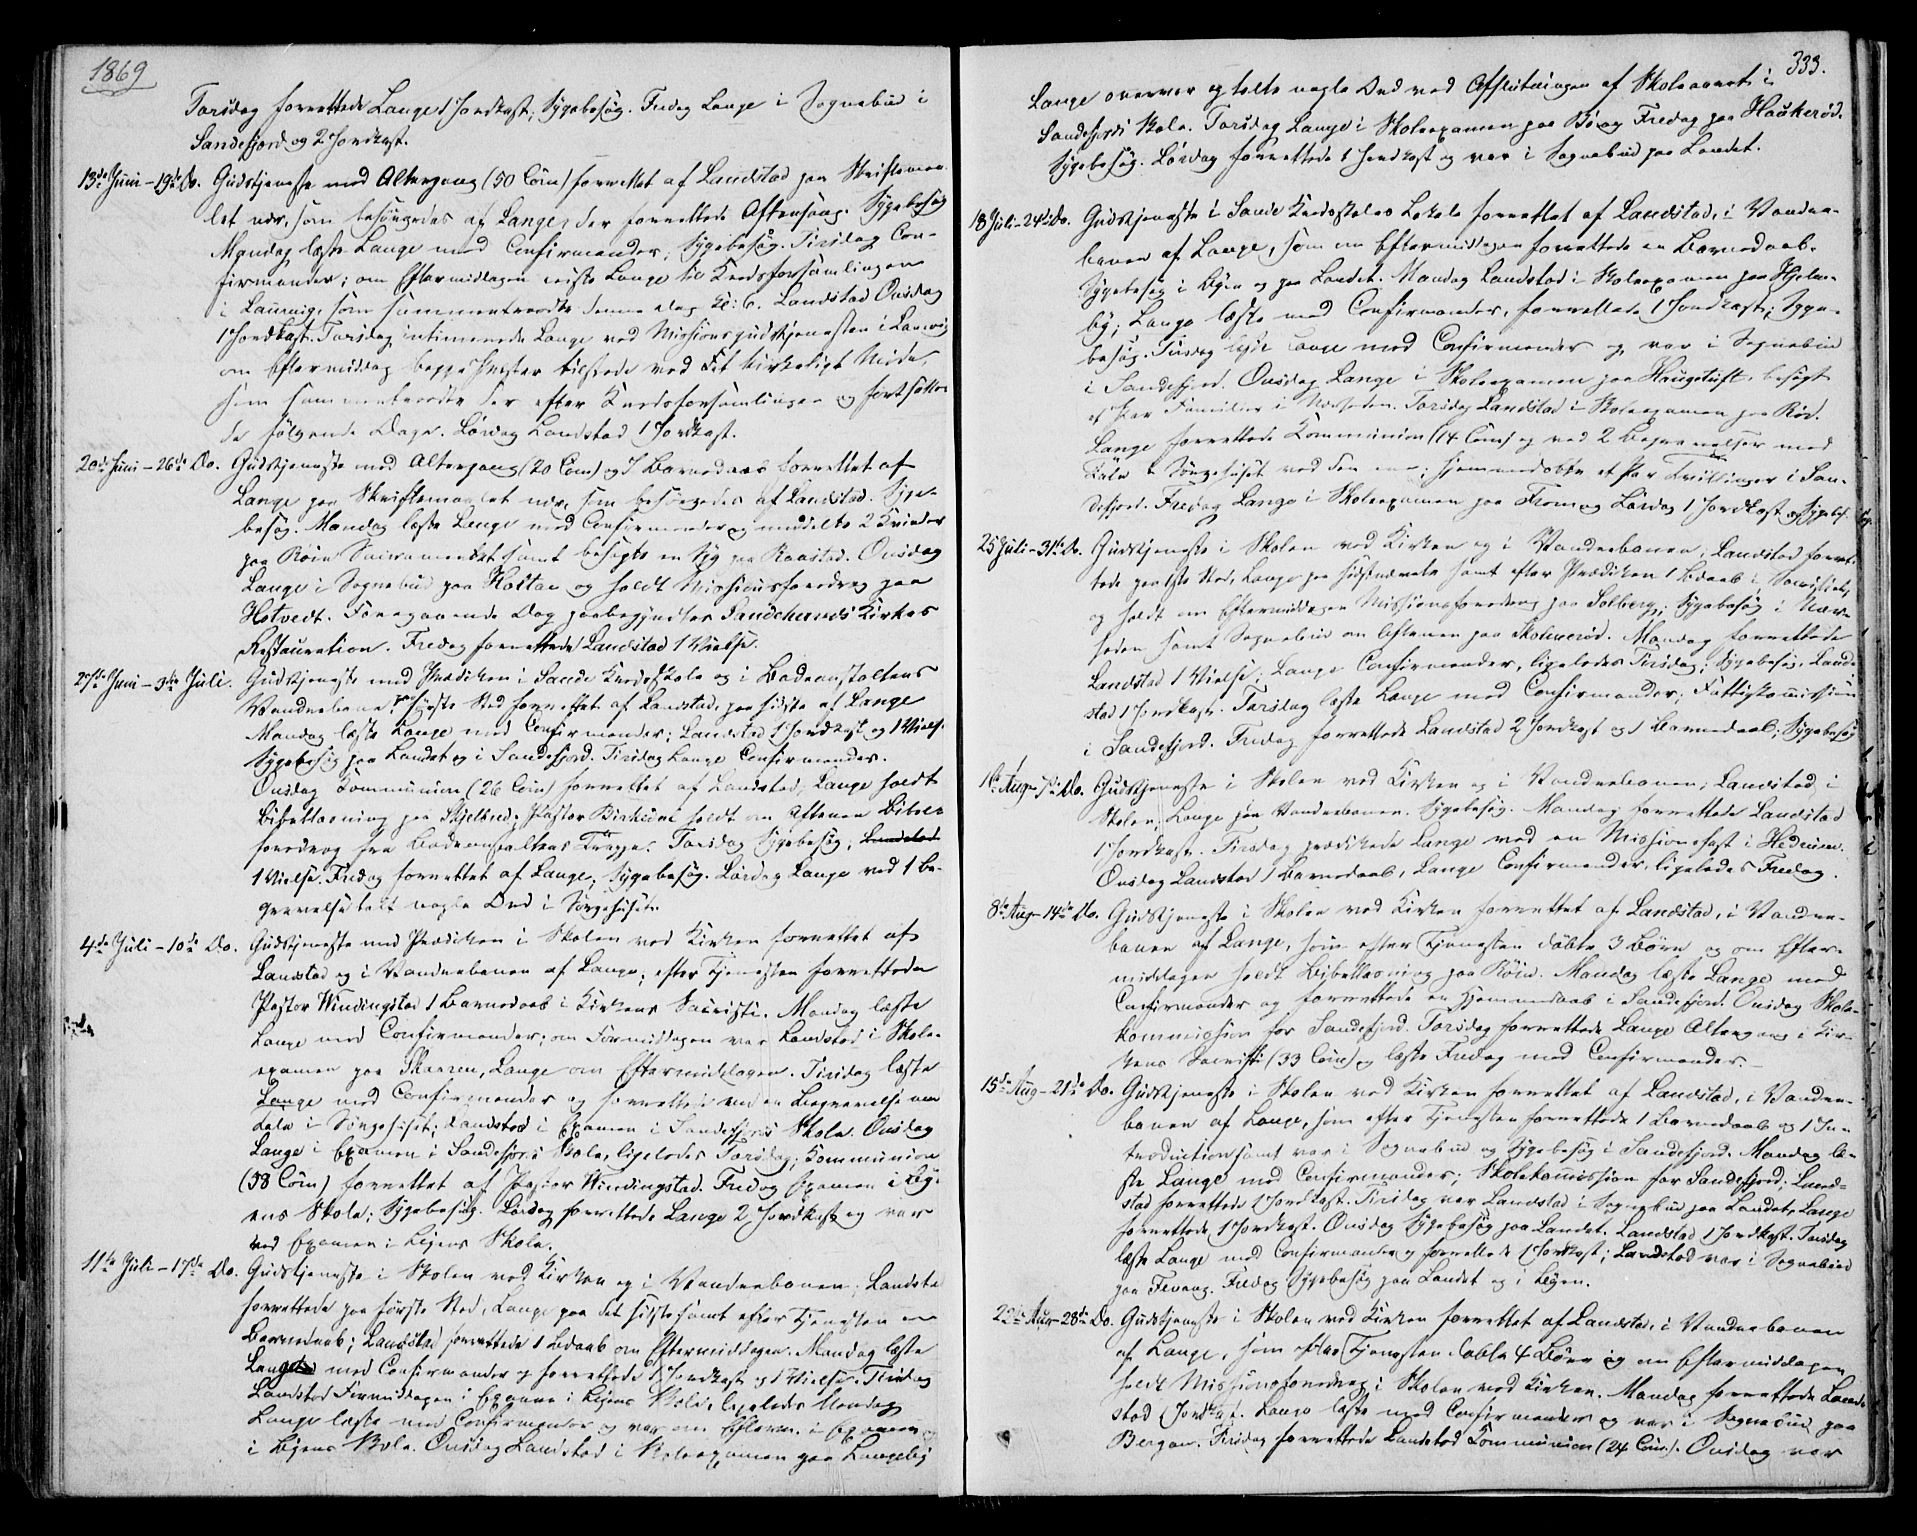 1869
Torsdag forrettede Lange 1 Jordkast; Sygebesøg. Fredag Lange i Sognebud i
Sandefjord og 2 Jordkast.
13de Juni – 19de Do. Gudstjeneste med Altergang (50 Com) forrettet af Landstad paa Skriftemaa-
let nær, som besørgedes af Lange, der forrettede Aftensang. Sygebesøg
Mandag læste Lange med Confirmander; Sygebesøg. Tirsdag Con-
firmander; om Eftermiddagen reiste Lange til Kredsforsamlingen
i Laurvig, som sammentraadte denne Dag Kl: 6. Landstad Onsdag
1 Jordkast. Torsdag intimerede Lange ved Missionsgudstjenesten i Laurvig
om Eftermiddag begge Prester tilstede ved Det kirkelige Møde
som sammentraadte der efter Kredsforsamlingen og fortsattes
de følgende Dage. Lørdag Landstad 1 Jordkast.
20de Juni – 26de Do. Gudstjeneste med Altergang (20 Com) og 7 Barnedaab forrettet af
Lange paa Skriftemaalet nær, som besørgedes af Landstad. Syge-
besøg. Mandag læste Lange med Confirmander og meddelte 2 Kvinder
paa Røin Sacramentet samt besøgte en Syg paa Raastad. Onsdag
Lange i Sognebud paa Hasle og holdt Missionsforedrag paa
Hotvedt. Foregaaende Dag paabegyndtes Sandeherreds Kirkes
Restauration. Fredag forrettede Landstad 1 Vielse.
27de Juni – 3die Juli. Gudstjeneste med Prædiken i Sande Kredsskole og i Badeanstaltens
Vandrebane, paa første Sted forrettet af Landstad, paa sidste af Lange
Mandag læste Lange med Confirmander; Landstad 1 Jordkast og 1 Vielse.
Sygebesøg paa Landet og i Sandefjord. Tirsdag Lange Confirmander.
Onsdag Kommunion (26 Com) forrettet af Landstad; Lange holdt
Bibellæsning paa Skjelbred; Pastor Birkedal holdt om Aftenen Bibel-
foredrag fra Badeanstaltens Trappe. Torsdag Sygebesøg; Landstad
1 Vielse. Fredag forrettet af Lange; Sygebesøg. Lørdag Lange ved 1 Be-
gravelse talt nogle Ord i Sørgehuset.
4de Juli – 10de Do. Gudstjeneste med Prædiken i Skolen ved Kirken forrettet af
Landstad og i Vandrebanen af Lange; efter Tjenesten forrettede
Pastor Windingstad 1 Barnedaab i Kirkens Sacristi. Mandag læste
Lange med Confirmander; om Formiddagen var Landstad i Skole-
examen paa Skaaren, Lange om Eftermiddagen. Tirsdag læste
Lange med Confirmander og forrettede ved en Begravelse en
Tale i Sørgehuset; Landstad i Examen i Sandefjords Skole. Onsdag
Lange i Examen i Sandefjords Skole, ligeledes Torsdag; Kommunion
(38 Com) forrettet af Pastor Windingstad. Fredag Examen i By-
ens Skole; Sygebesøg. Lørdag forrettede Lange 2 Jordkast og var
ved Examen i Byens Skole.
11te Juli – 17de Do. Gudstjeneste i Skolen ved Kirken og i Vandrebanen; Landstad
forrettede paa første Sted, Lange paa det sidste samt efter Tjenesten en
Barnedaab; Landstad forrettede 1 Bdaab om Eftermiddagen. Mandag læste
Lange med Confirmander og forrettede 1 Jordkast og 1 Vielse. Tirsdag
Landstad Formiddagen i Examen i Byens Skole, ligeledes Mandag
Lange læste med Confirmander og var om Efterm. i Examen
i Byens Skole. Onsdag Landstad i Skoleexamen paa Langeby
333.
Lange overvær og talte nogle Ord ved Afslutningen af Skoleaaret i
Sandefjords Skole. Torsdag Lange i Skoleexamen paa Børa, Fredag paa Haukerød.
Sygebesøg. Lørdag forrettede 1 Jordkast og var i Sognebud paa Landet.
18 Juli – 24de Do. Gudstjeneste i Sande Kredsskoles Lokale forrettet af Landstad, i Vandre-
banen af Lange, som om Eftermiddagen forrettede en Barnedaab.
Sygebesøg i Byen og paa Landet. Mandag Landstad i Skoleexamen paa Hjelm-
by; Lange læste med Confirmander, forrettede 1 Jordkast; Syge-
besøg. Tirsdag læste Lange med Confirmander og var i Sognebud
i Sandefjord. Onsdag Lange i Skoleexamen paa Haugetuft, besøgt
et Par Familier i Nærheden. Torsdag Landstad i Skoleexamen paa Rød.
Lange forrettede Kommunion (14 Com) og ved 2 Begravelser med
Tale i Sørgehuset ved den ene; hjemmedøbte et Par Tvillinger i San-
defjord. Fredag Lange i Skoleexamen paa Fram og Lørdag 1 Jordkast og Sygebs.
25 Juli – 31te Do. Gudstjeneste i Skolen ved Kirken og i Vandrebanen; Landstad forret-
tede paa 1ste Sted, Lange paa sidstnævnte samt efter Prædiken 1 Bdaab i Sacristiet,
og holdt om Eftermiddagen Missionsforedrag paa Solberg; Sygebesøg i Nær-
heden samt Sognebud om Aftenen paa Skolmerød. Mandag forrettede
Landstad 1 Vielse; Lange Confirmander, ligeledes Tirsdag; Sygebesøg, Land-
stad 1 Jordkast. Torsdag læste Lange med Confirmander; Fattigkommission
i Sandefjord. Fredag forrettede Landstad 2 Jordkast og 1 Barnedaab; Sygebesøg
1te Aug – 7de Do. Gudstjeneste i Skolen ved Kirken og i Vandrebanen; Landstad i
Skolen, Lange paa Vandrebanen. Sygebesøg. Mandag forrettede Landstad
1 Jordkast. Tirsdag prædikede Lange ved en Missionsfest i Hedrum.
Onsdag Landstad 1 Barnedaab, Lange Confirmander, ligeledes Fredag.
8de Aug – 14de Do. Gudstjeneste i Skolen ved Kirken forrettet af Landstad, i Vandre-
banen af Lange, som efter Tjenesten døbte 3 Børn og om Efter-
middagen holdt Bibellæsning paa Røin. Mandag læste Lange med
Confirmander og forrettede en Hjemmedaab i Sandefjord. Onsdag Skole-
kommission for Sandefjord. Torsdag forrettede Lange Altergang i Kir-
kens Sacristi (33 Com) og læste Fredag med Confirmander.
15de Aug – 21de Do. Gudstjeneste i Skolen ved Kirken forrettet af Landstad, i Vandre-
banen af Lange, som efter Tjenesten forrettede 1 Barnedaab og 1 In-
troduction samt var i Sognebud og Sygebesøg i Sandefjord. Mandag læ-
ste Lange med Confirmander; Skolekomission for Sandefjord; Land-
stad forrettede 1 Jordkast. Tirsdag var Landstad i Sognebud paa Landet, Lange
forrettede 1 Jordkast. Onsdag Sygebesøg paa Landet. Landstad 1 Jordkast. Torsdag
læste Lange med Confirmander og forrettede 1 Jordkast; Landstad var i Sognebud
paa Fevang. Fredag Sygebesøg paa Landet og i Byen.
22de Aug – 28de Do. Gudstjeneste i Skolen ved Kirken forrettet af Landstad, i Vandrebanen
af Lange, som efter Tjenesten døbte 4 Børn og om Eftermiddagen
holdt Missionsforedrag i Skolen ved Kirken. Mandag forrettede Land-
stad 1 Jordkast. Lange læste med Confirmander og var i Sognebud paa
Bergan. Tirsdag forrettede Landstad Kommunion (24 Com). Onsdag var